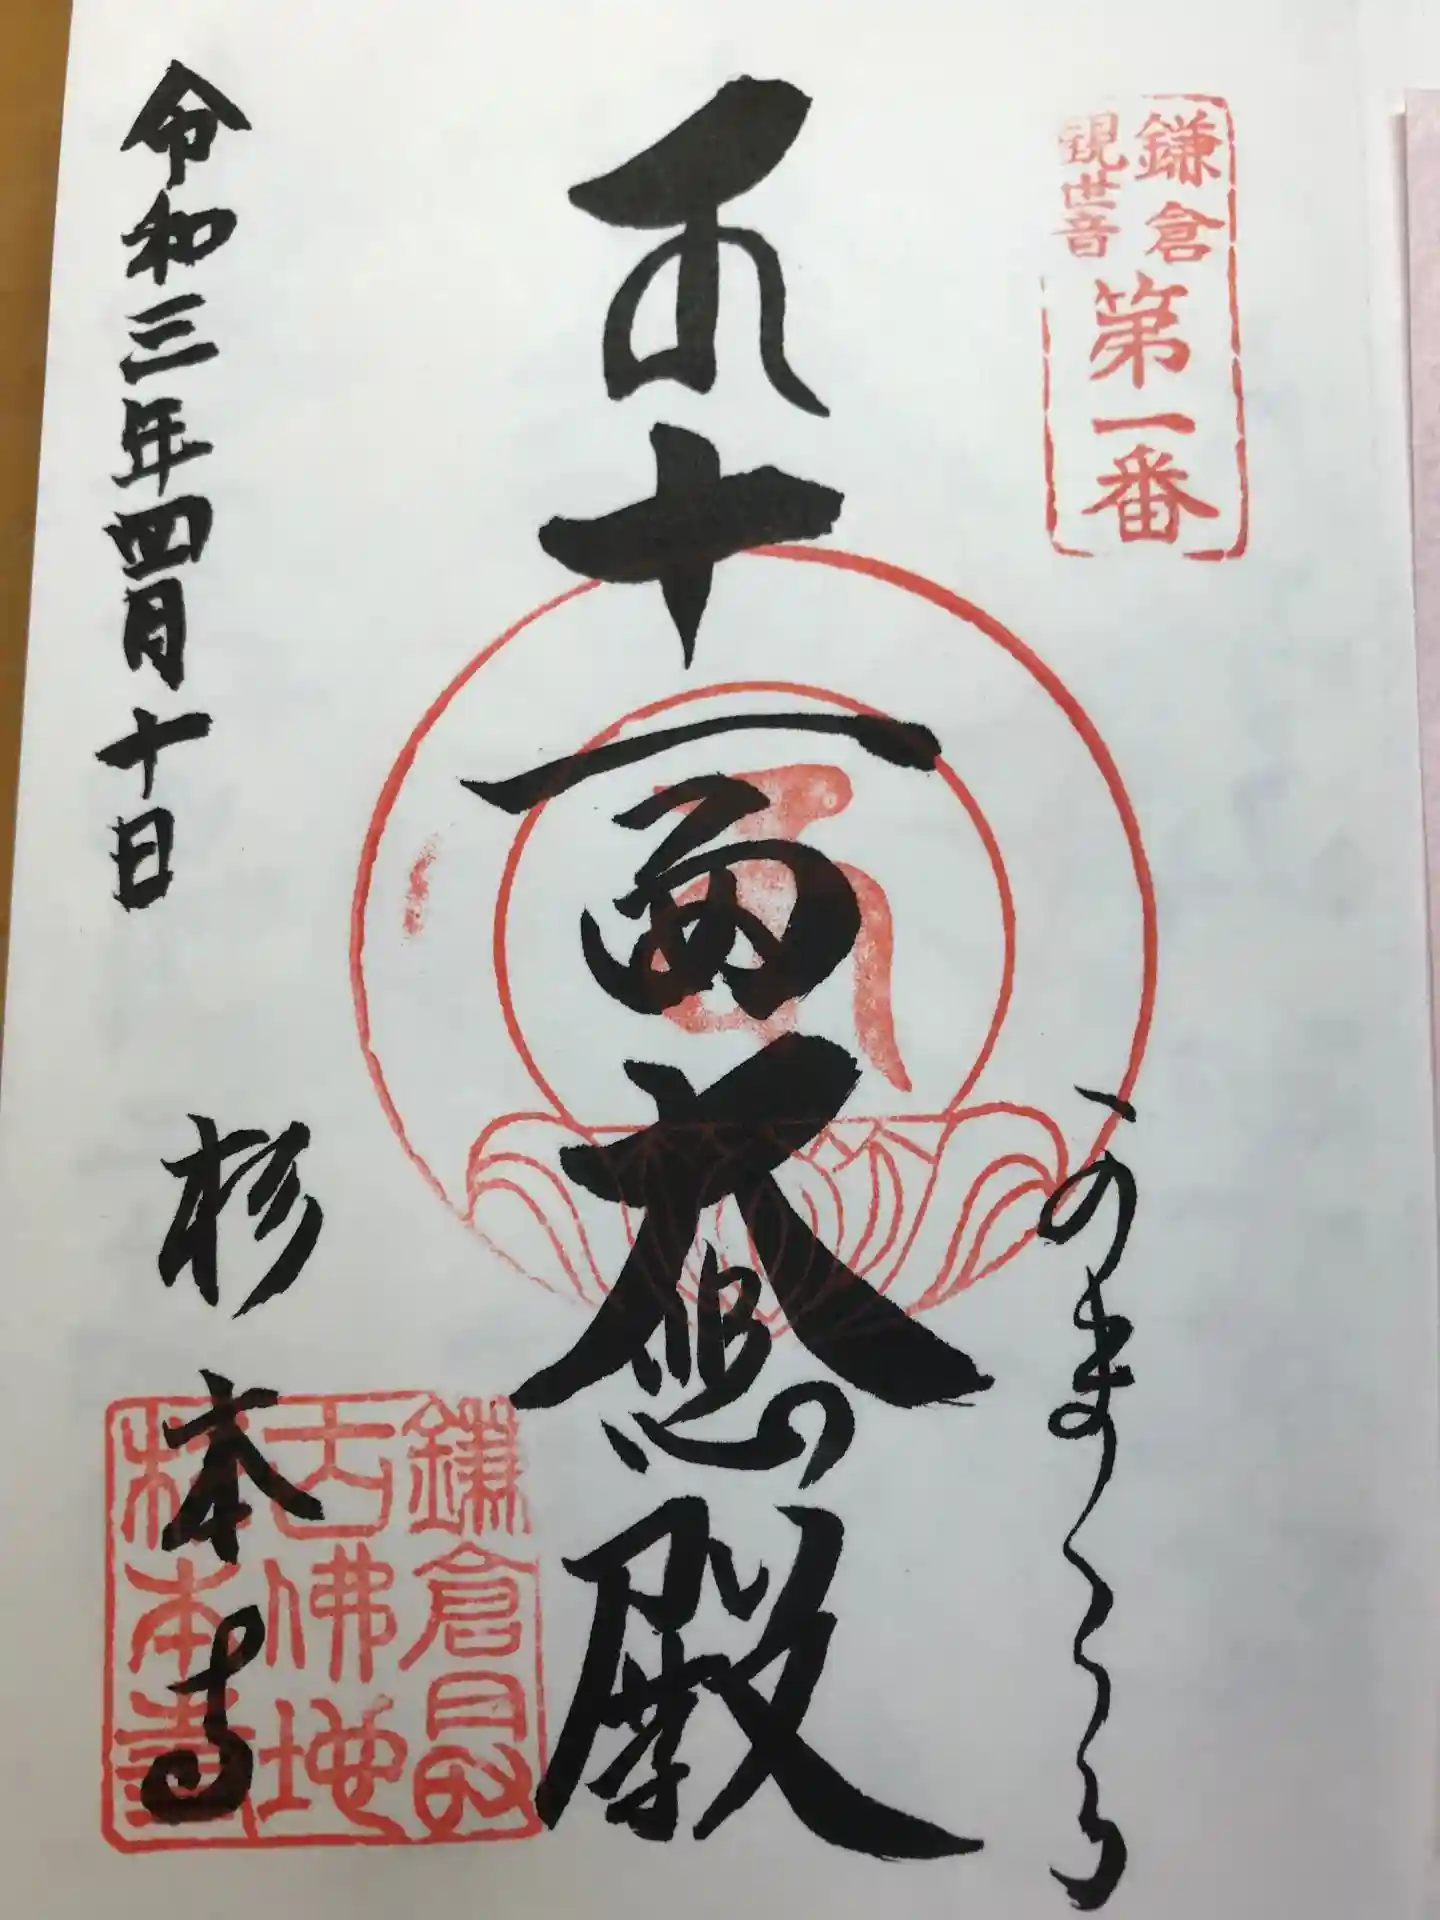 鎌倉
観世音
第一番
かまくら
十一面大悲殿
令和三年四月十日
杉本寺
鎌倉最
古佛地
杉本寺